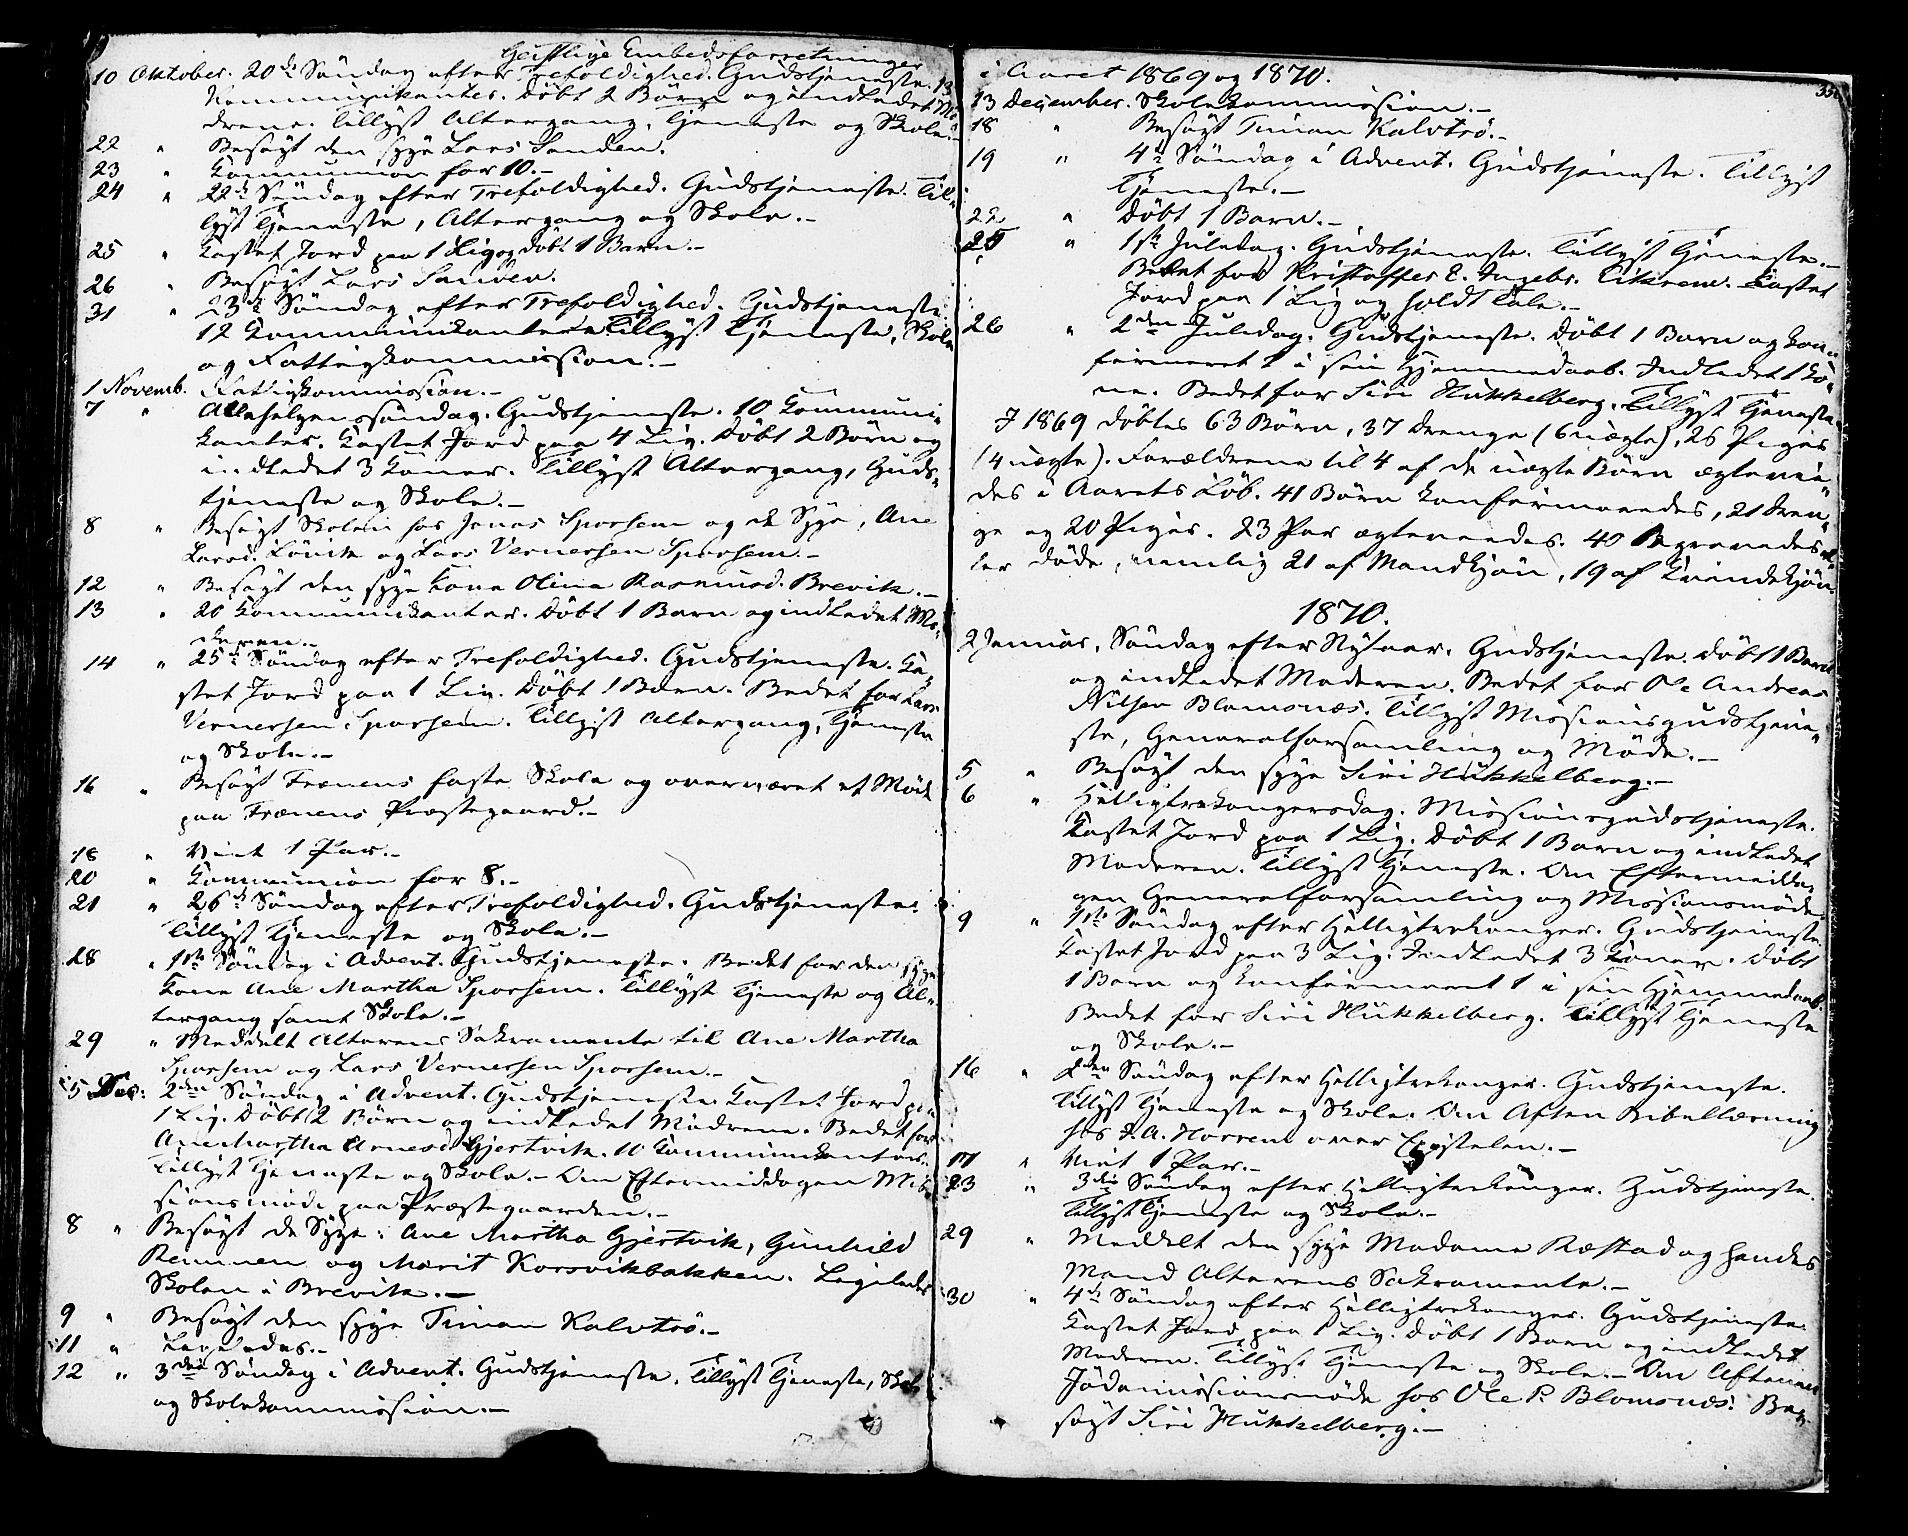 Geistlige Embedsforretninger
10 Oktober. 20de Söndag efter Trefoldighed. Gudstjeneste. 13
Kommunikanter. Döbt 2 Börn og indledet Mö-
drene. Tillyst Altergang, Tjeneste og Skole.-
22 " Besögt den syge Lars Sanden.
23 " Kommunion for 10.-
24 " 22de Söndag efter Trefoldighed. Gudstjeneste. Til-
lyst Tjeneste, Altergang og Skole.-
25 " Kastet Jord paa 1 Lig og döbt 1 Barn.-
26 " Besögt Lars Sanden.
31 " 23de Söndag efter Trefoldighed. Gudstjeneste.
12 Kommunikanter. Tillyst Tjeneste, Skole
og Fattigkommission.-
1 Novemb. Fattigkommission.-
7 " Allehelgenssöndag. Gudstjeneste. 10 Kommuni-
kanter. Kastet Jord paa 4 Lig. Döbt 2 Börn og
indledet 3 Koner. Tillyst Altergang, Guds-
tjeneste og Skole.-
8 " Besögt Skolen hos Jonas Sporsem og de Syge, Ane
Larsd. Lövik og Lars Vernersen Sporsem.-
12 " Besögt den syge Kone Olina Rasmusd. Brevik.-
13 " 20 Kommunikanter. Döbt 1 Barn og indledet Mo-
deren.-
14 " 25de Söndag efter Trefoldighed. Gudstjeneste. Ka-
stet Jord paa 1 Lig. Döbt 1 Barn. Bedet for Lars
Vernersen Sporsem. Tillyst Altergang, Tjeneste
og Skole.-
16 " Besögt Frænens faste Skole og overværet et Möde
paa Frænens Præstegaard.-
18 " Viet 1 Par.-
20 " Kommunion for 8.-
21 " 26de Söndag efter Trefoldighed. Gudstjeneste.
Tillyst Tjeneste og Skole.-
28 " 1ste Söndag i Advent. Gudstjeneste. Bedet for den syge
Kone Ane Martha Sporsem. Tillyst Tjeneste og Al-
tergang samt Skole.-
29 " Meddelt Alterens Sakramente til Ane Martha
Sporsem og Lars Vernersen Sporsem.-
5 Dec. 2den Söndag i Advent. Gudstjeneste. Kastet Jord paa
1 Lig. Döbt 2 Börn og indledet Mödrene. Bedet for
Anemartha Arnesd. Gjertvik. 10 Kommunikanter.
Tillyst Tjeneste og Skole.- Om Eftermiddagen Mis-
sionsmöde paa Præstegaarden.-
8 " Besögt de Syge: Ane Martha Gjertvik, Gunhild
Remmen og Marit Korsvikbakken. Ligeledes
Skolen i Brevik.-
9 " Besögt den syge Timan Kalvtrö.-
11 " Ligeledes.-
12 " 3die Söndag i Advent. Gudstjeneste. Tillyst Tjeneste, Skole
og Skolekommission.-
i Aaret 1869 og 1870.
13 December. Skolekommission.-
18 " Besögt Timan Kalvtrö.-
19 " 4de Söndag i Advent. Gudstjeneste. Tillyst
Tjeneste.-
22 " Döbt 1 Barn.-
25 " 1ste Juledag. Gudstjeneste. Tillyst Tjeneste.-
Bedet for Kristoffer E. Ingebr. Kastet
Jord paa 1 Lig og holdt Tale.-
26 " 2den Juledag. Gudstjeneste. Döbt 1 Barn og kon-
firmeret 1 i sin Hjemmedaab. Indledet 1 Ko-
ne. Bedet for Siri Hukkelberg. Tillyst Tjeneste.
I 1869 döbtes 63 Börn, 37 Drenge (6 uægte), 26 Piger
(4 uægte). Forældrene til 4 af de uægte Börn ægtevie-
des i Aarets Löb. 41 Börn konfirmeredes, 21 Dren-
ge og 20 Piger. 23 Par ægteviedes. 40 Begravedes el-
ler döde, nemlig 21 af Mandkjön, 19 af Kvindekjön.
1870.
2 Januar. Söndag efter Nytaar. Gudstjeneste. Döbt 1 Barn
og indledet Moderen. Bedet for Ole Andreas
Nilsen Blomsnæs. Tillyst Missionsgudstjene-
ste, Generalforsamling og Möde.-
5 " Besögt den syge Siri Hukkelberg.-
6 " Helligtrekongersdag. Missionsgudstjeneste.
Kastet Jord paa 1 Lig. Döbt 1 Barn og indledet
Moderen. Tillyst Tjeneste. Om Eftermidda-
gen Generalforsamling og Missionsmöde.
9 " 1ste Söndag efter Helligtrekonger. Gudstjeneste.
Kastet Jord paa 3 Lig. Indledet 3 Koner. Döbt
1 Barn og konfirmeret 1 i sin Hjemmedaab.
Bedet for Siri Hukkelberg. Tillyst Tjeneste
og Skole.-
16 " 2den Söndag efter Helligtrekonger. Gudstjeneste.
Tillyst Tjeneste og Skole. Om Aften Bibellæsning
hos J. A. Horrem over Epistelen.-
17 " Viet 1 Par.-
23 " 3die Söndag efter Helligtrekonger. Gudstjeneste.
Tillyst Tjeneste og Skole.-
29 " Meddelt den syge Madame Ræstad og hendes
Mand Alterens Sakramente.-
30 " 4de Söndag efter Helligtrekonger. Gudstjeneste.
Kastet Jord paa 1 Lig. Döbt 1 Barn og indledet
Moderen. Tillyst Tjeneste og Skole.- Om Aftenen
Jödemissionsmöde hos Ole P. Blomsnæs. Be-
sögt Siri Hukkelberg.-